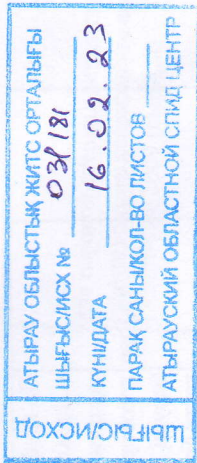 ШЫҒЫС/ИСХОД
АТЫРАУ ОБЛЫСТЫҚ ЖИТС ОРТАЛЫҒЫ
ШЫҒЫС/ИСХ № 03/181
КҮНІ/ДАТА 16.02.23
ПАРАҚ САНЫ/КОЛ-ВО ЛИСТОВ
АТЫРАУСКИЙ ОБЛАСТНОЙ СПИД ЦЕНТР